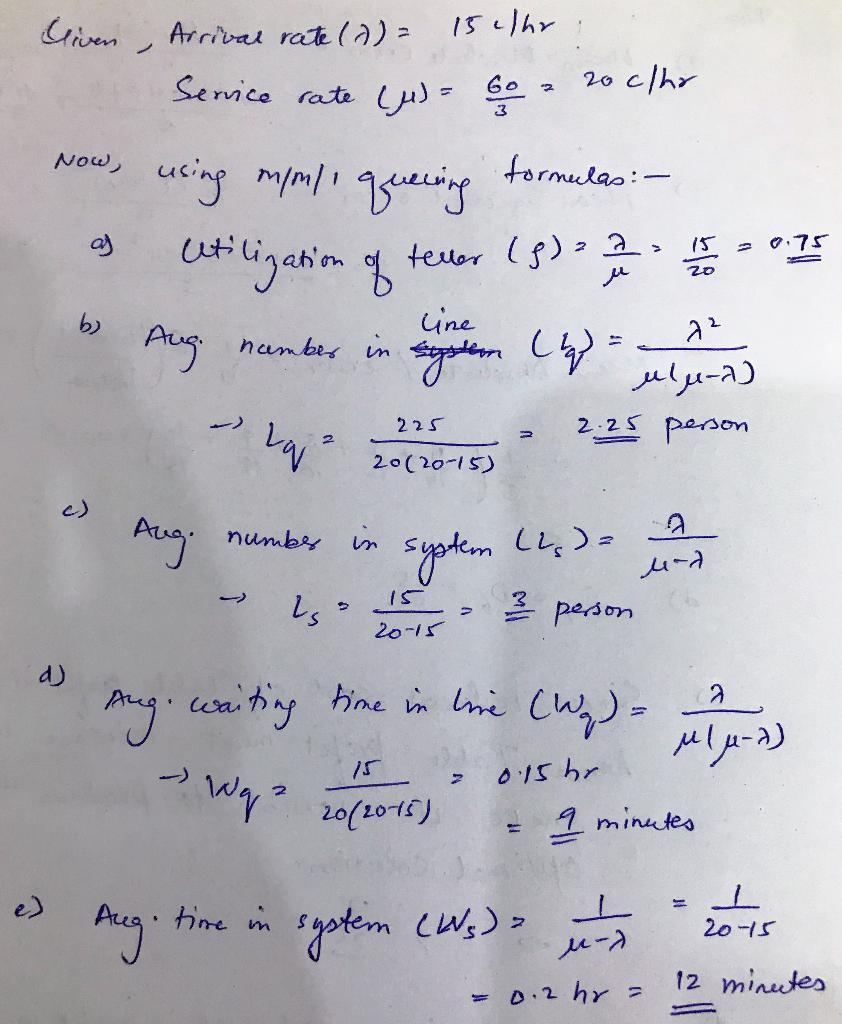 Given, Arrival rate (λ) = 15 c/hr
Service rate (μ) = 60/3 = 20 c/hr
Now, using M/M/1 queuing formulas:-
a) Utilization of teller (ρ) = λ/μ = 15/20 = 0.75
b) Avg. number in system line (Lq) = λ²/μ(μ-λ)
→ Lq = 225/20(20-15) = 2.25 person
c) Avg. number in system (Ls) = λ/μ-λ
→ Ls = 15/20-15 = 3 person
d) Avg. waiting time in line (Wq) = λ/μ(μ-λ)
→ Wq = 15/20(20-15) = 0.15 hr
= 9 minutes
e) Avg. time in system (Ws) = 1/μ-λ = 1/20-15
= 0.2 hr = 12 minutes